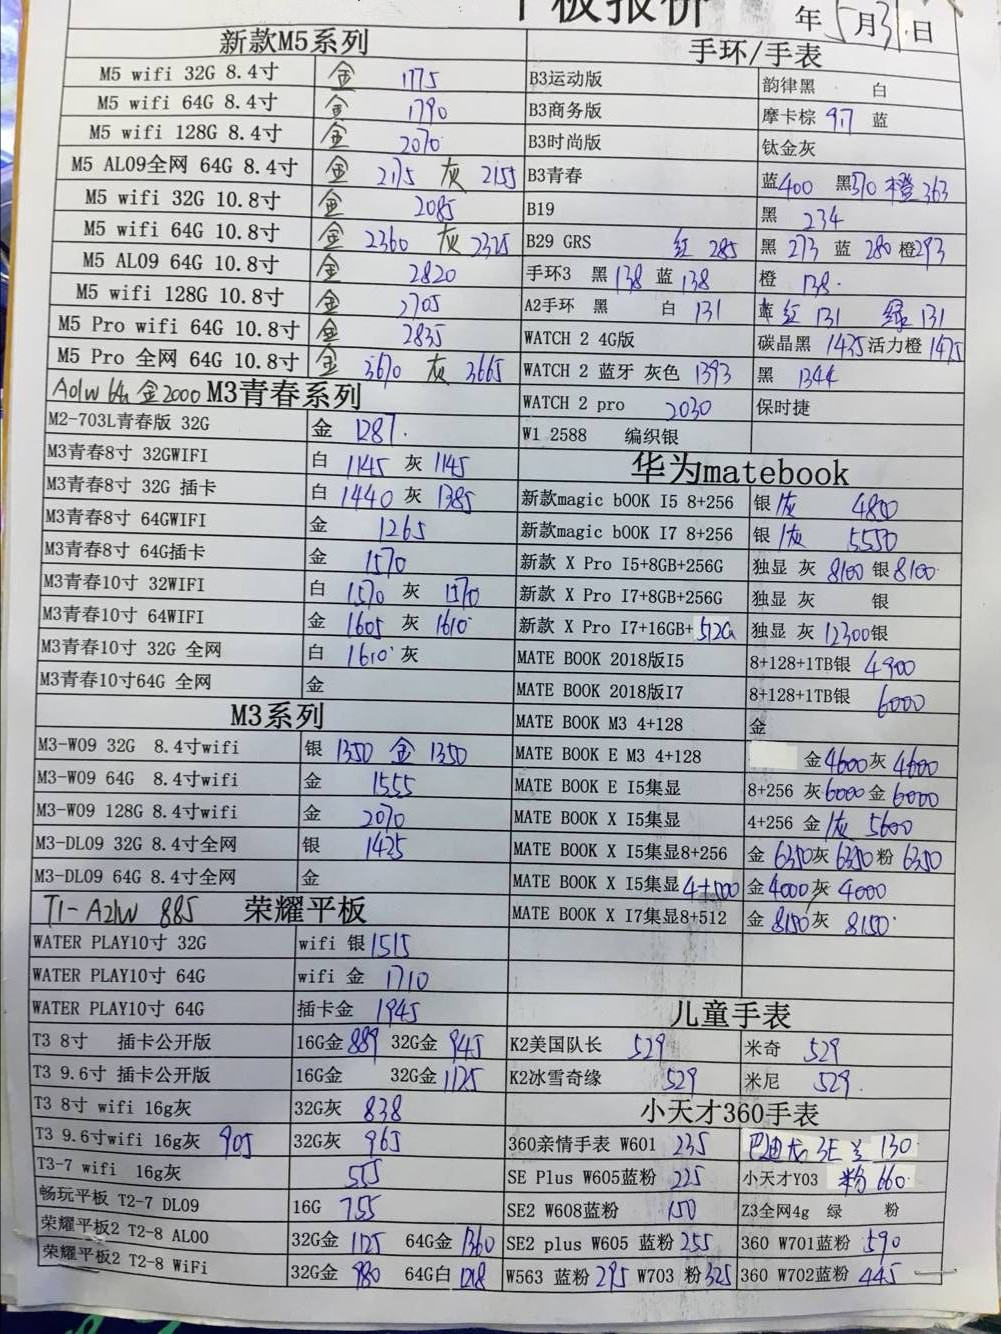 平板报价
年 5月31日
新款M5系列
M5 wifi 32G 8.4寸 金 1775
M5 wifi 64G 8.4寸 金 1790
M5 wifi 128G 8.4寸 金 2070
M5 AL09全网 64G 8.4寸 金 2175 灰 2155
M5 wifi 32G 10.8寸 金 2085
M5 wifi 64G 10.8寸 金 2360 灰 2325
M5 AL09 64G 10.8寸 金 2820
M5 wifi 128G 10.8寸 金 2705
M5 Pro wifi 64G 10.8寸 金 2835
M5 Pro 全网 64G 10.8寸 金 3670 灰 3665
A01W 64G 金2000 M3青春系列
M2-703L青春版 32G 金 1287.
M3青春8寸 32GWIFI 白 1145 灰 1145
M3青春8寸 32G 插卡 白 1440 灰 1385
M3青春8寸 64GWIFI 金 1265
M3青春8寸 64G插卡 金 1570
M3青春10寸 32WIFI 白 1570 灰 1570
M3青春10寸 64WIFI 金 1605 灰 1610
M3青春10寸 32G 全网 白 1610 灰
M3青春10寸64G 全网 金
M3系列
M3-W09 32G 8.4寸wifi 银 1350 金 1350
M3-W09 64G 8.4寸wifi 金 1555
M3-W09 128G 8.4寸wifi 金 2070
M3-DL09 32G 8.4寸全网 银 1425
M3-DL09 64G 8.4寸全网 金
T1-A21W 885 荣耀平板
WATER PLAY10寸 32G wifi 银 1515
WATER PLAY10寸 64G wifi 金 1710
WATER PLAY10寸 64G 插卡金 1945
T3 8寸 插卡公开版 16G金 889 32G金 945
T3 9.6寸 插卡公开版 16G金 32G金 1125
T3 8寸 wifi 16g灰 32G灰 838
T3 9.6寸wifi 16g灰 905 32G灰 965
T3-7 wifi 16g灰 555
畅玩平板 T2-7 DL09 16G 755
荣耀平板2 T2-8 AL00 32G金 1125 64G金 1360
荣耀平板2 T2-8 WiFi 32G金 980 64G白 1218
手环/手表
B3运动版 韵律黑 白
B3商务版 摩卡棕 917 蓝
B3时尚版 钛金灰
B3青春 蓝400 黑370 橙 363
B19 黑 234
B29 GRS 红 285 黑 273 蓝 280 橙293
手环3 黑 138 蓝 138 橙 138.
A2手环 黑 白 131 蓝 红 131 绿 131
WATCH 2 4G版 碳晶黑 1425 活力橙 1475
WATCH 2 蓝牙 灰色 1393 黑 1344
WATCH 2 pro 2030 保时捷
W1 2588 编织银
华为matebook
新款magic bOOK I5 8+256 银 1灰 4800
新款magic bOOK I7 8+256 银 1灰 5550
新款 X Pro I5+8GB+256G 独显 灰 8100 银8100
新款 X Pro I7+8GB+256G 独显 灰 银
新款 X Pro I7+16GB+512G 独显 灰 12300银
MATE BOOK 2018版I5 8+128+1TB银 4900
MATE BOOK 2018版I7 8+128+1TB银 6000
MATE BOOK M3 4+128 金
MATE BOOK E M3 4+128 金4600灰 4600
MATE BOOK E I5集显 8+256 灰6000 金 6000
MATE BOOK X I5集显 4+256 金 1灰 5600
MATE BOOK X I5集显8+256 金 6350灰 6350 粉 6350
MATE BOOK X I5集显4+500 金 4000 灰 4000
MATE BOOK X I7集显8+512 金 8150灰 8150
儿童手表
K2美国队长 529 米奇 529
K2冰雪奇缘 529 米尼 529.
小天才360手表
360亲情手表 W601 235 巴迪龙 3E 兰 130
SE Plus W605蓝粉 225 小天才Y03 粉 660.
SE2 W608蓝粉 150 Z3全网4g 绿 粉
SE2 plus W605 蓝粉 255 360 W701蓝粉 590
W563 蓝粉 295 W703 粉 325 360 W702蓝粉 445